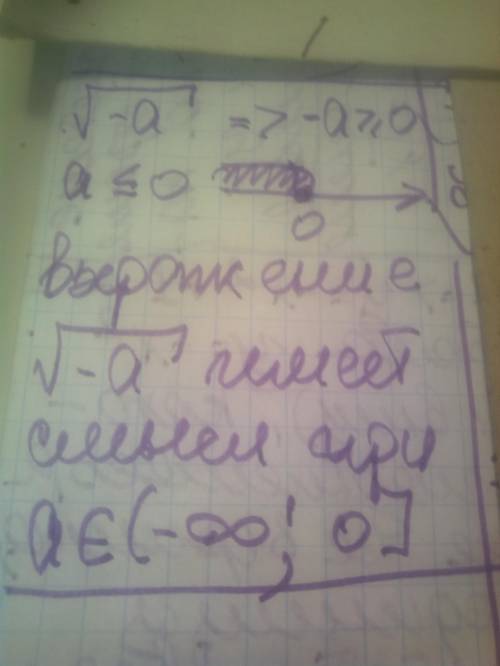 √-a => -a ≥ 0
a ≤ 0
0
выражение
√-a имеет
смысл при
a ∈ (-∞; 0]